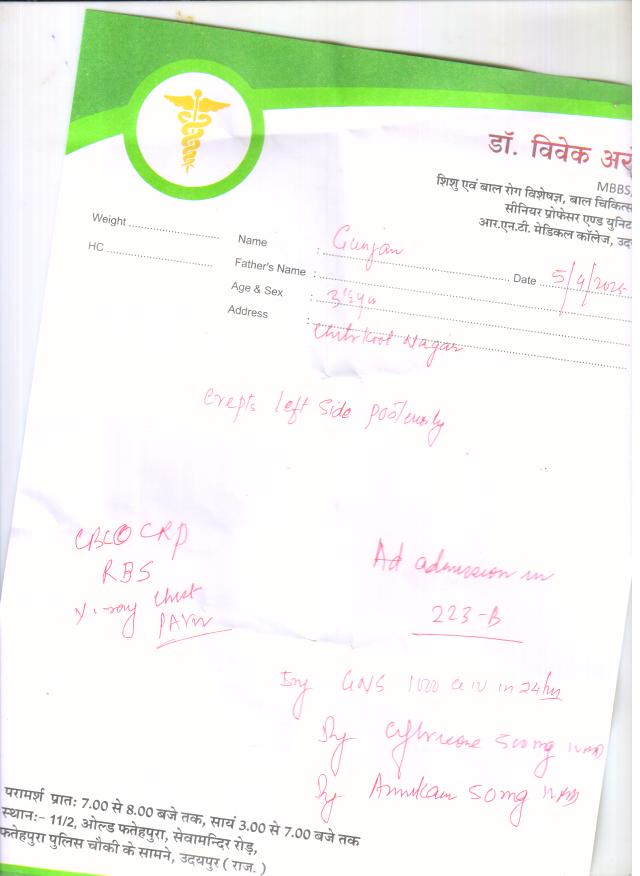 डॉ. विवेक अरो
MBBS,
शिशु एवं बाल रोग विशेषज्ञ, बाल चिकित्स
सीनियर प्रोफेसर एण्ड युनिट
आर.एन.टी. मेडिकल कॉलेज, उद
Weight
HC
Name : Gunjan
Date 5/4/2025
Father's Name :
Age & Sex : 3 1/2 yr
Address : Chitrkoot Nagar
Crepts left side posteriorly
CBC CRP
RBS
X-ray Chest
PA View
Ad admission in
223-B
Inj GNS 1000 cc IV in 24 hr
Inj 500 mg
Inj Amikam 50 mg
परामर्श प्रात: 7.00 से 8.00 बजे तक, सायं 3.00 से 7.00 बजे तक
स्थान:- 11/2, ओल्ड फतेहपुरा, सेवामन्दिर रोड़,
फतेहपुरा पुलिस चौकी के सामने, उदयपुर ( राज. )